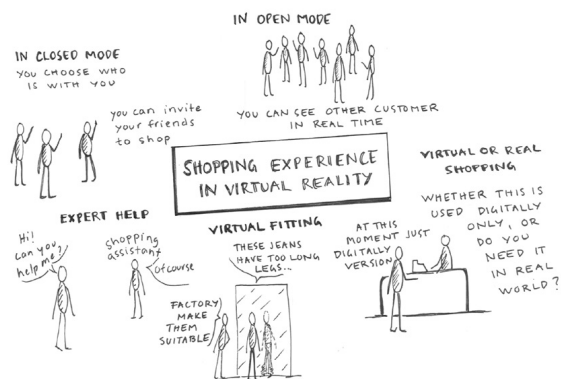 IN OPEN MODE
IN CLOSED MODE
YOU CHOOSE WHO
IS WITH YOU
you can invite
your friends
to shop
YOU CAN SEE OTHER CUSTOMER
IN REAL TIME
SHOPPING EXPERIENCE
IN VIRTUAL REALITY
VIRTUAL OR REAL
SHOPPING
WHETHER THIS IS
USED DIGITALLY
ONLY, OR
DO YOU
NEED IT
IN REAL
WORLD?
EXPERT HELP
Hi!
can you
help me?
shopping
assistant
Of course
VIRTUAL FITTING
THESE JEANS
HAVE TOO LONG
LEGS...
FACTORY
MAKE
THEM
SUITABLE
AT THIS
MOMENT JUST
DIGITALLY
VERSION